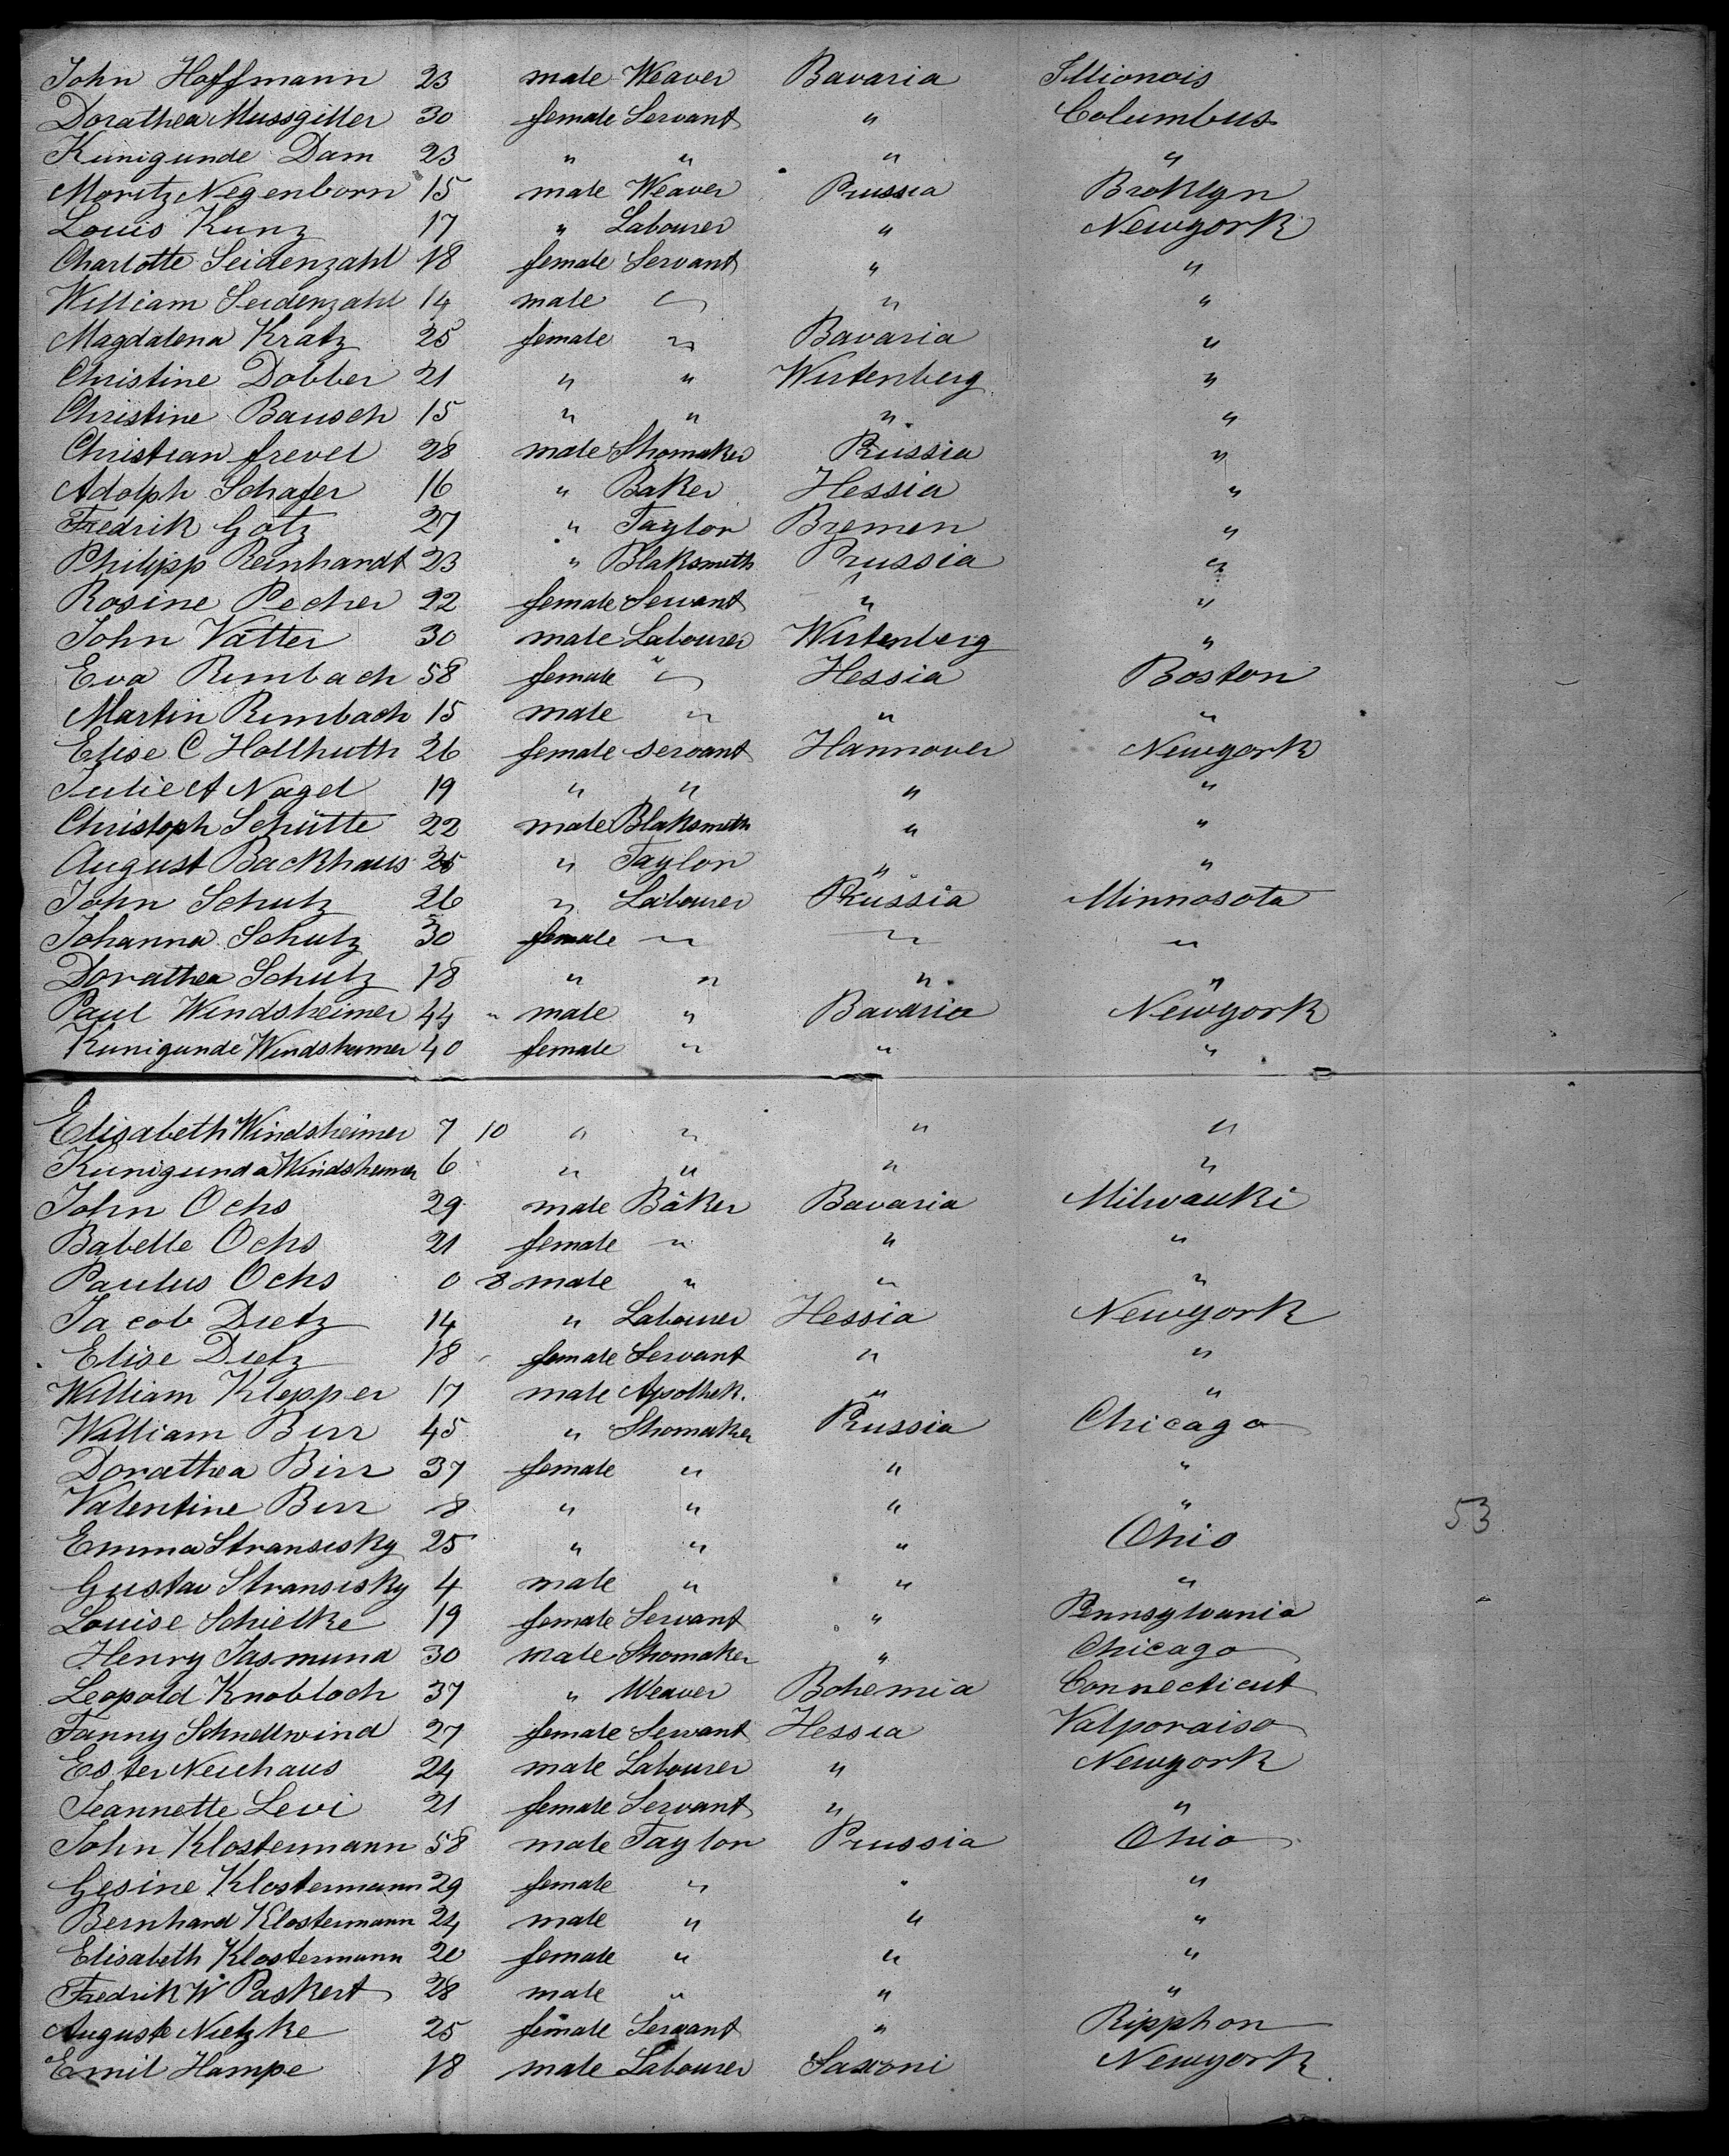 John Hoffmann 23 male Weaver Bavaria Illionois
Dorathea Mussgiller 30 female Servant " Columbus
Kunigunde Dam 23 " " " "
Moritz Negenborn 15 male Weaver Prussia Broklyn
Louis Kunz 17 " Labourer " Newyork
Charlotte Seidenzahl 18 female Servant " "
William Seidenzahl 14 male " " "
Magdalena Kratz 25 female " Bavaria "
Christine Dobber 21 " " Wirtenberg "
Christine Bausch 15 " " " "
Christian frevel 28 male Shomaker Prussia "
Adolph Schafer 16 " Baker Hessia "
Fredrik Gotz 27 " Taylor Bremen "
Philipp Reinhardt 23 " Blaksmith Prussia "
Rosine Pecher 22 female Servant " "
John Vatter 30 male Labourer Wirtenberg "
Eva Rimbach 58 female " Hessia Boston
Martin Rimbach 15 male " " "
Elise C Hollhuth 26 female servant Hannover Newyork
Julie A Nagel 19 " " " "
Christoph Schütte 22 male Blaksmith " "
August Backhaus 25 " Taylor " "
John Schutz 26 " Labourer Prussia Minnosota
Johanna Schutz 30 female " " "
Dorathea Schutz 18 " " " "
Paul Windsheimer 44 " male " Bavaria Newyork
Kunigunde Windsheimer 40 female " " "
Elisabeth Windsheimer 7 10 " " " "
Kunigunda Windsheimer 6 " " " "
John Ochs 29 male Bäker Bavaria Milwauki
Babette Ochs 21 female " " "
Paulus Ochs 0 8 male " " "
Jacob Dietz 14 " Labourer Hessia Newyork
Elise Dietz 18 female Servant " "
William Klepper 17 male Apothek. " "
William Birr 45 " Shomaker Prussia Chicago
Dorathea Birr 37 female " " "
Valentine Birr 8 " " " "
53
Emma Stransisky 25 " " " Ohio
Gustav Stransisky 4 male " " "
Louise Schielke 19 female Servant " Pennsylvania
Henry Jasmund 30 male Shomaker " Chicago
Leopold Knobloch 37 " Weaver Bohemia Connecticut
Fanny Schnellwind 27 female Servant Hessia Valporaiso
Ester Neuhaus 24 male Labourer " Newyork
Jeannette Levi 21 female Servant " "
John Klostermann 58 male Taylor Prussia Ohio
Gesine Klostermann 29 female " " "
Bernhard Klostermann 24 male " " "
Elisabeth Klostermann 20 female " " "
Fredrik W Paskert 28 male " " "
Auguste Nietzke 25 female Servant " Ripphon
Emil Hampe 18 male Labourer Saxoni Newyork